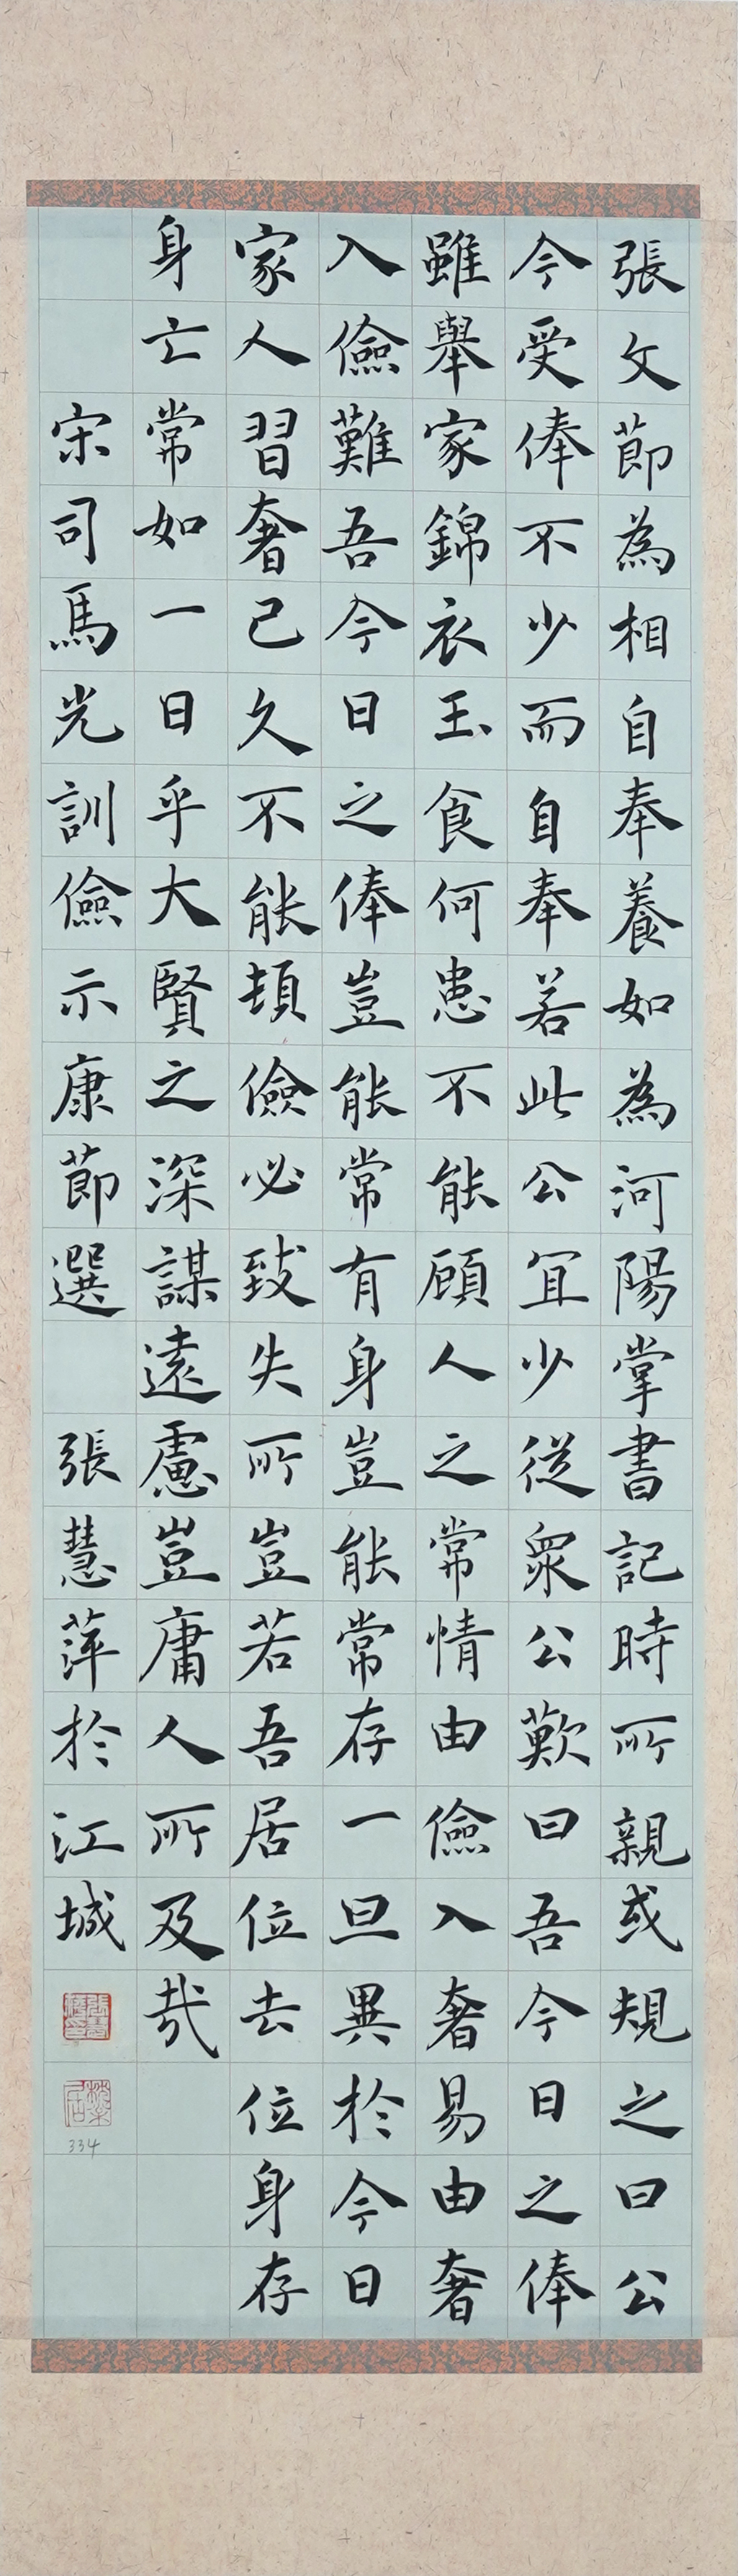 張文節為相自奉養如為河陽掌書記時所親或規之曰公
今受俸不少而自奉若此公宜少從眾公歎曰吾今日之俸
雖舉家錦衣玉食何患不能顧人之常情由儉入奢易由奢
入儉難吾今日之俸豈能常有身豈能常存一旦異於今日
家人習奢已久不能頓儉必致失所豈若吾居位去位身存
身亡常如一日乎大賢之深謀遠慮豈庸人所及哉
宋司馬光訓儉示康節選 張慧萍於江城
334